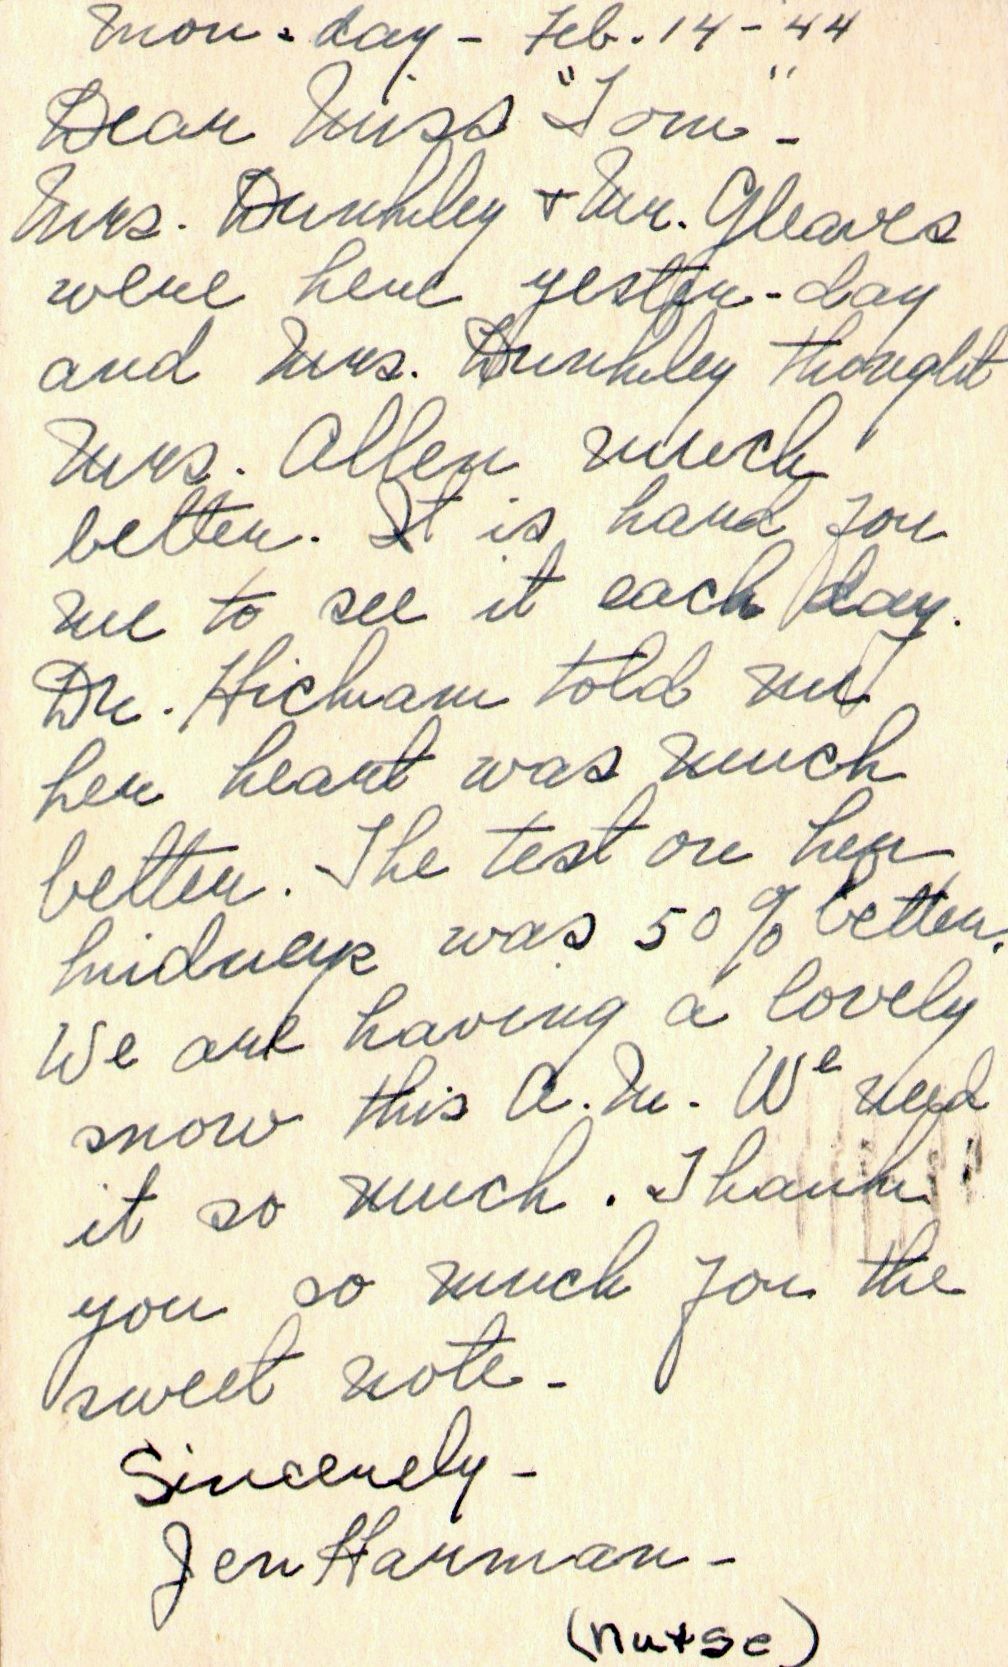 Mon-day - Feb. 14 - 44
Dear Miss "Tom" -
Mrs. Dunkley + Mr. Gleaves
were here yester-day
and Mrs. Dunkley thought
Mrs. Allen much
better. It is hard for
me to see it each day.
Dr. Hickam told me
her heart was much
better. The test on her
kidneys was 50% better.
We are having a lovely
snow this A.M. We need
it so much. Thank
you so much for the
sweet note -
Sincerely -
Jen Harman -
(nurse)